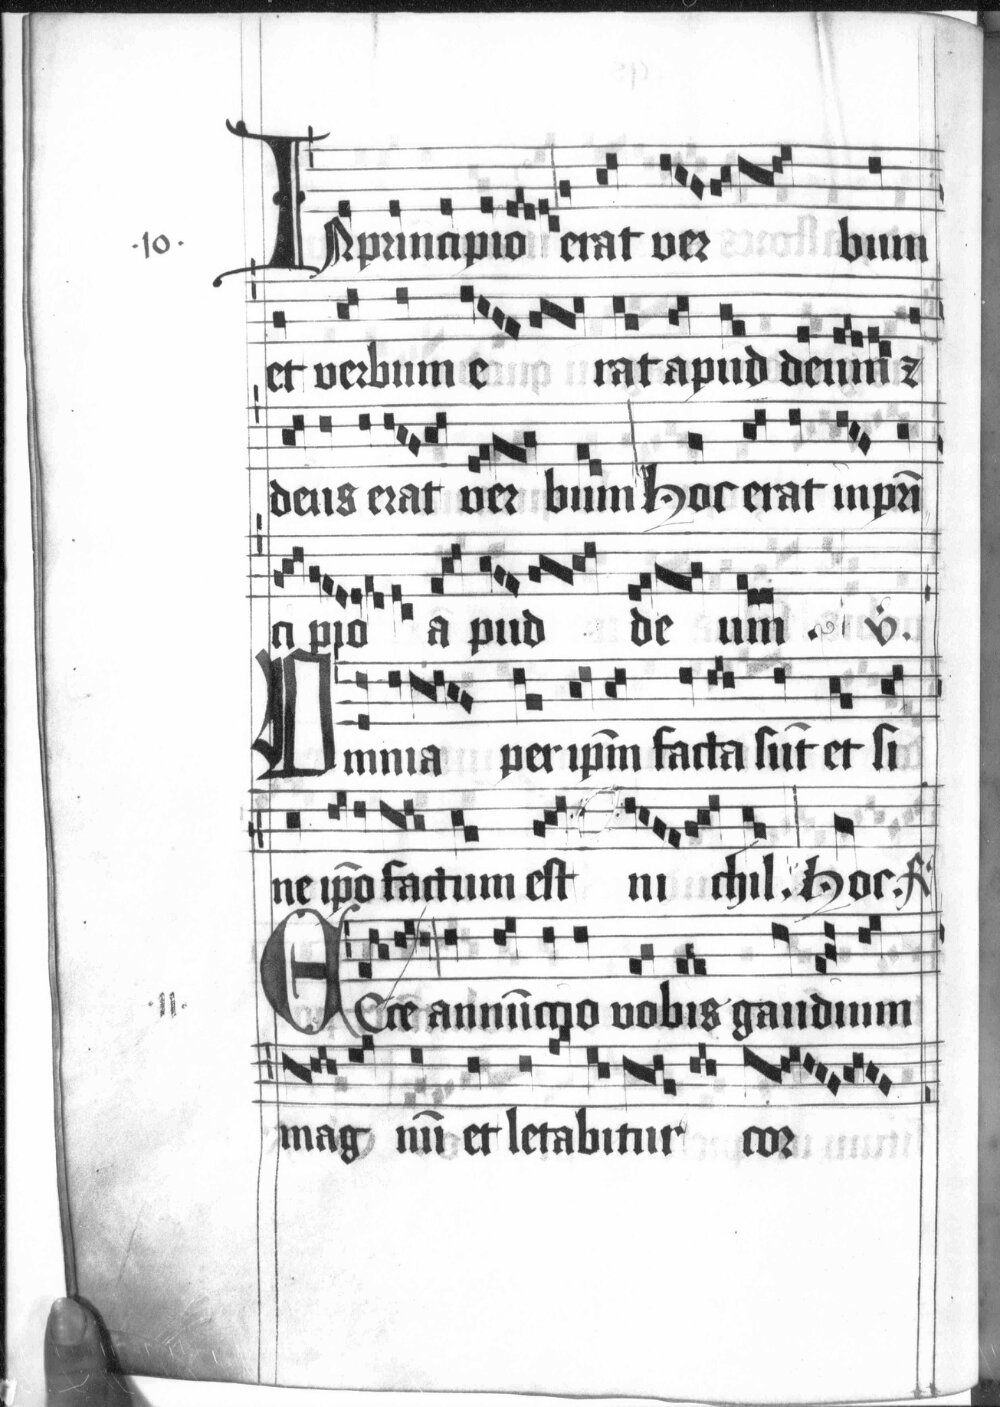 ·10·
INprincipio erat ver bum
et verbum e rat apud deum ⁊
deus erat ver bum Hoc erat inpri̅
ci pio a̅ pud de um . v̇.
Omnia per ip̅m facta su̅t et si
ne ip̅o factum est ni chil. Hoc.
·11·
ECce annu̅cio vobis gaudium
mag nu̅ et letabitur cor